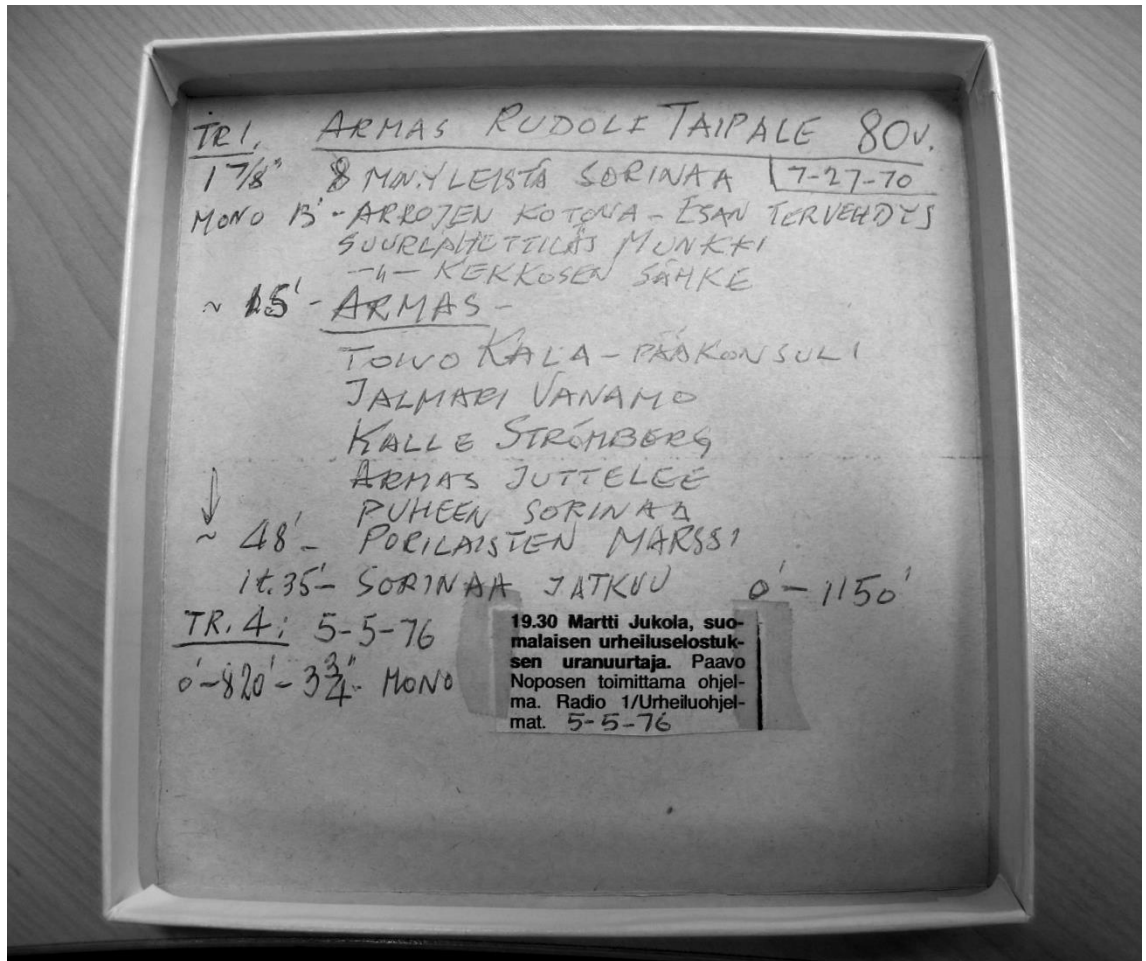 TR 1. ARMAS RUDOLF TAIPALE 80V.
1 7/8" 8 MIN. YLEISTÄ SORINAA 7-27-70
MONO 13' - ARROJEN KOTONA - ESAN TERVEHDYS
MUNKKI
-"- KEKKOSEN SÄHKE
~ 15' - ARMAS -
TOIVO KALA - PÄÄKONSULI
JALMARI VANAMO
KALLE STRÖMBERG
ARMAS JUTTELEE
PUHEEN SORINAA
~ 48' - PORILAISTEN MARSSI
1t.35' - SORINAA JATKUU 0' - 1150'
TR. 4: 5-5-76
0' - 820' - 3 3/4" - MONO
19.30 Martti Jukola, suo-
malaisen urheiluselostuk-
sen uranuurtaja. Paavo
Noposen toimittama ohjel-
ma. Radio 1/Urheiluohjel-
mat. 5-5-76